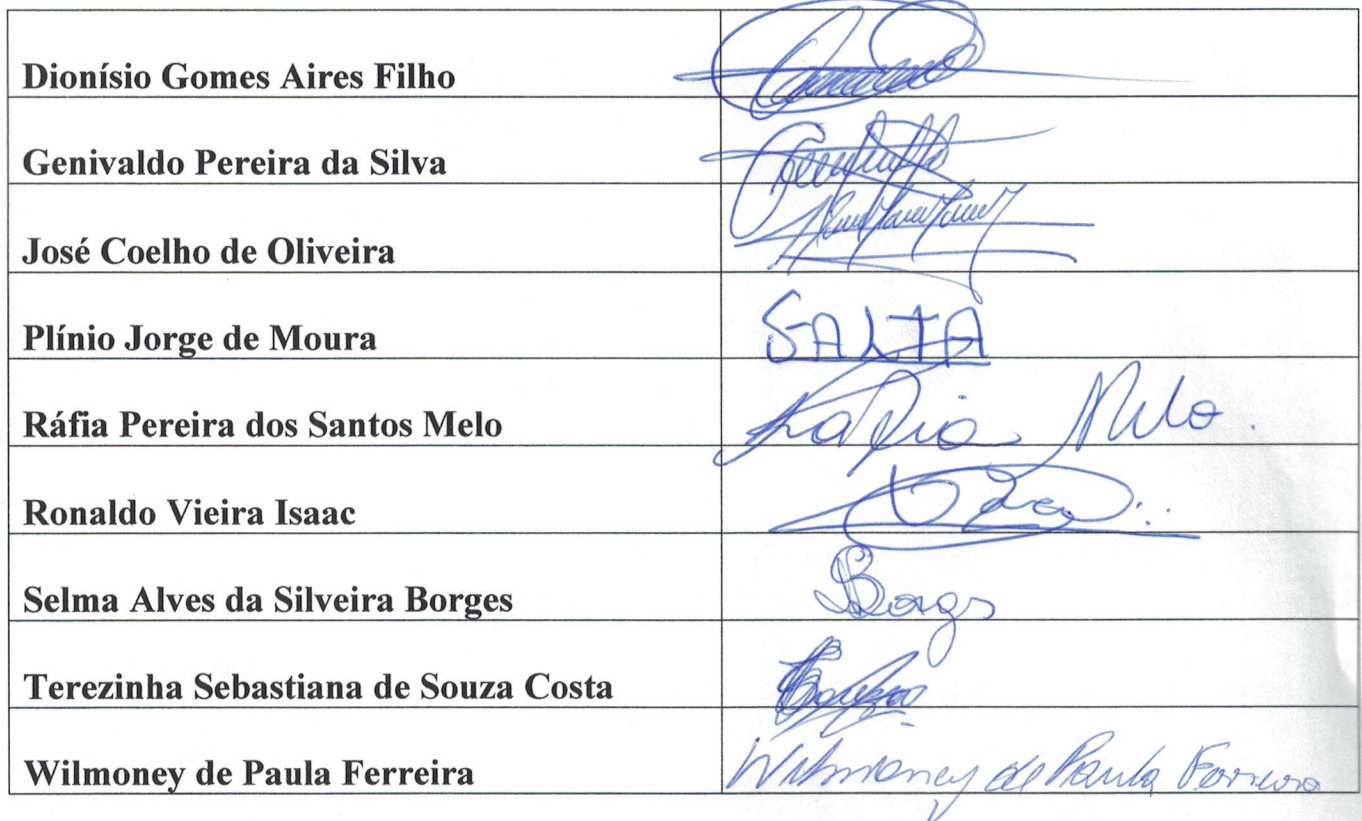 Dionísio Gomes Aires Filho
Genivaldo Pereira da Silva
José Coelho de Oliveira
Plínio Jorge de Moura FALTA
Ráfia Pereira dos Santos Melo Ráfia Melo.
Ronaldo Vieira Isaac
Selma Alves da Silveira Borges Borges
Terezinha Sebastiana de Souza Costa
Wilmoney de Paula Ferreira Wilmoney de Paula Ferreira